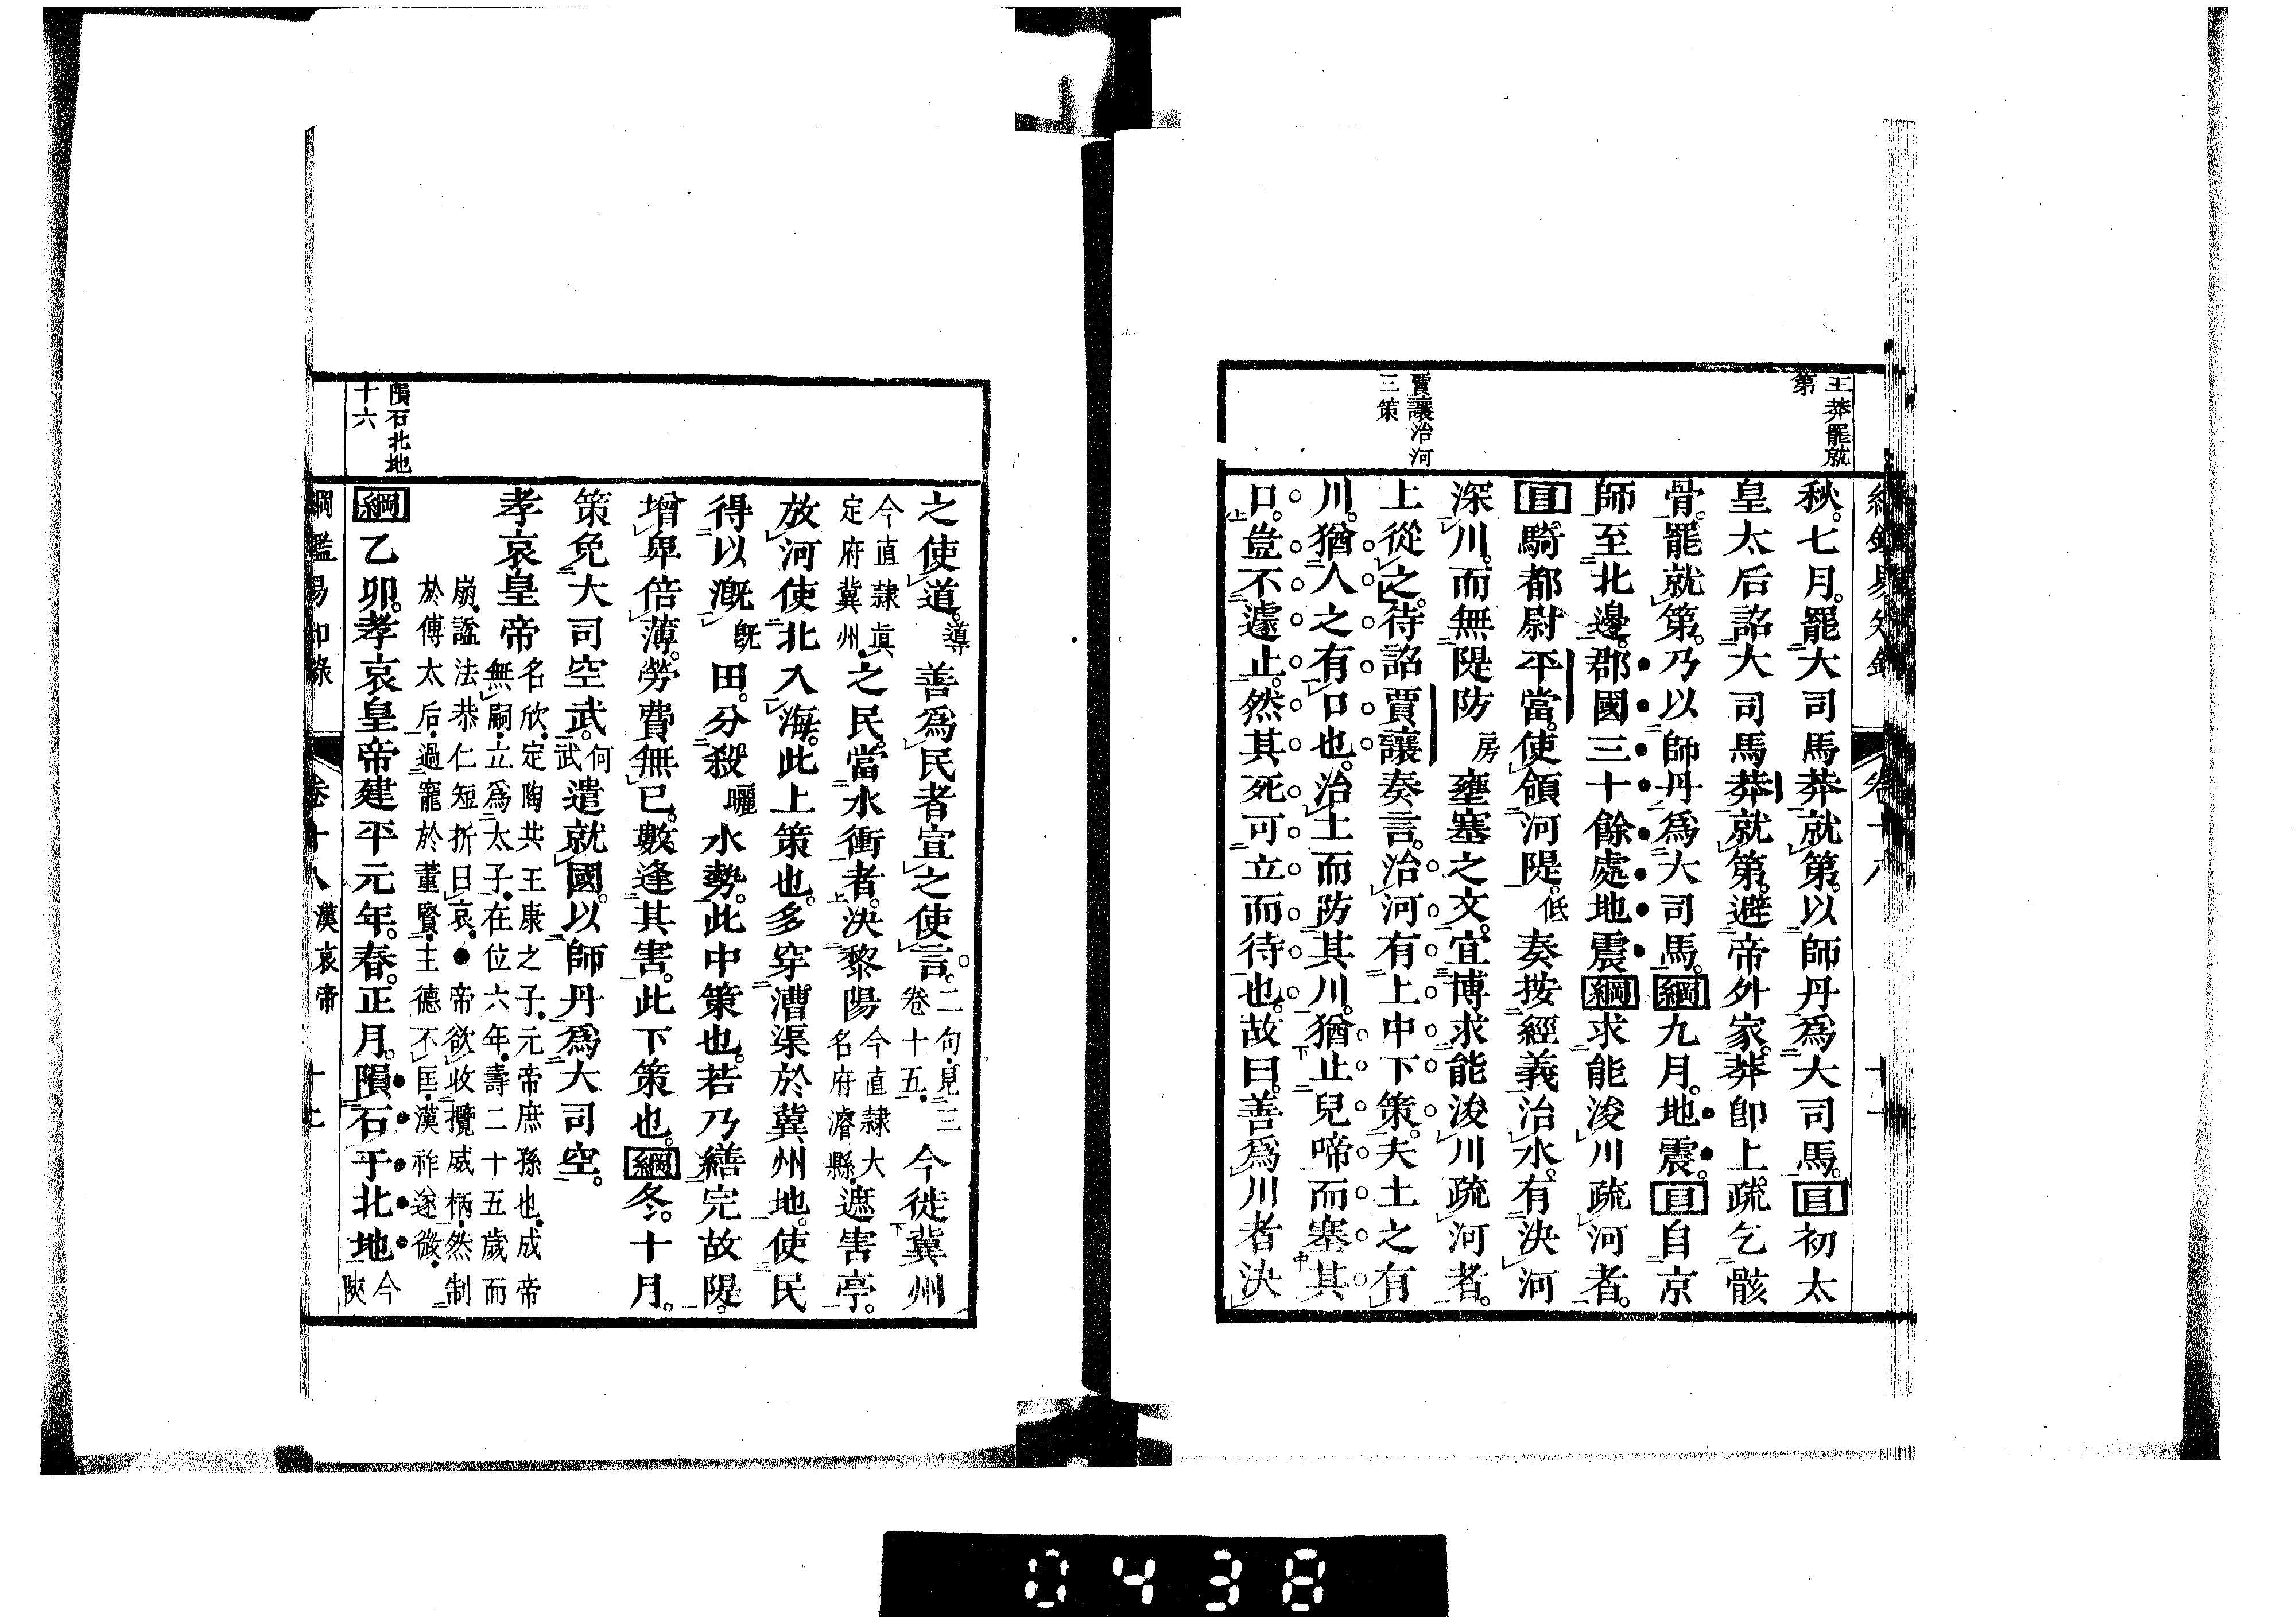 王莽罷就
第
賈讓治河
三策
秋。七月。罷大司馬莽就第。以師丹爲大司馬。目初太
皇太后詔大司馬莽就第。避帝外家。莽卽上疏。乞骸
骨。罷就第。乃以師丹爲大司馬。綱九月。地震。目自京
師至北邊。郡國三十餘處地震綱求能浚川疏河者。
目騎都尉平當。使領河隄。低奏按經義治水。有決河
深川。而無隄防房壅塞之文。宜博求能浚川疏河者。
上從之。待詔賈讓奏言。治河有上中下策。夫土之有
川。猶人之有口也。治土而防其川。猶止兒啼而塞其
口。豈不遽止。然其死可立而待也。故曰。善爲川者決
之使道。導善爲民者宣之使言。二句見三卷十五今徙冀州
今直隷眞定府冀州之民。當水衝者。決黎陽今直隷大名府濬縣遮害亭。
放河使北入海。此上策也。多穿漕渠於冀州地。使民
得以漑旣田。分殺曬水勢。此中策也。若乃繕完故隄。
增卑倍薄。勞費無已。數逢其害。此下策也。綱冬。十月。
策免大司空武。何武遣就國。以師丹爲大司空。
孝哀皇帝名欣。定陶共王康之子。元帝庶孫也。成帝
無嗣。立爲太子。在位六年。壽二十五歲而
崩。諡法恭仁短折曰哀。●帝欲收攬威柄。然制
於傅太后。過寵於董賢。主德不匡。漢祚遂微。
綱乙卯。孝哀皇帝建平元年。春。正月。隕石于北地今陝
隕石北地
十六
綱鑑易知錄 卷十八 漢哀帝